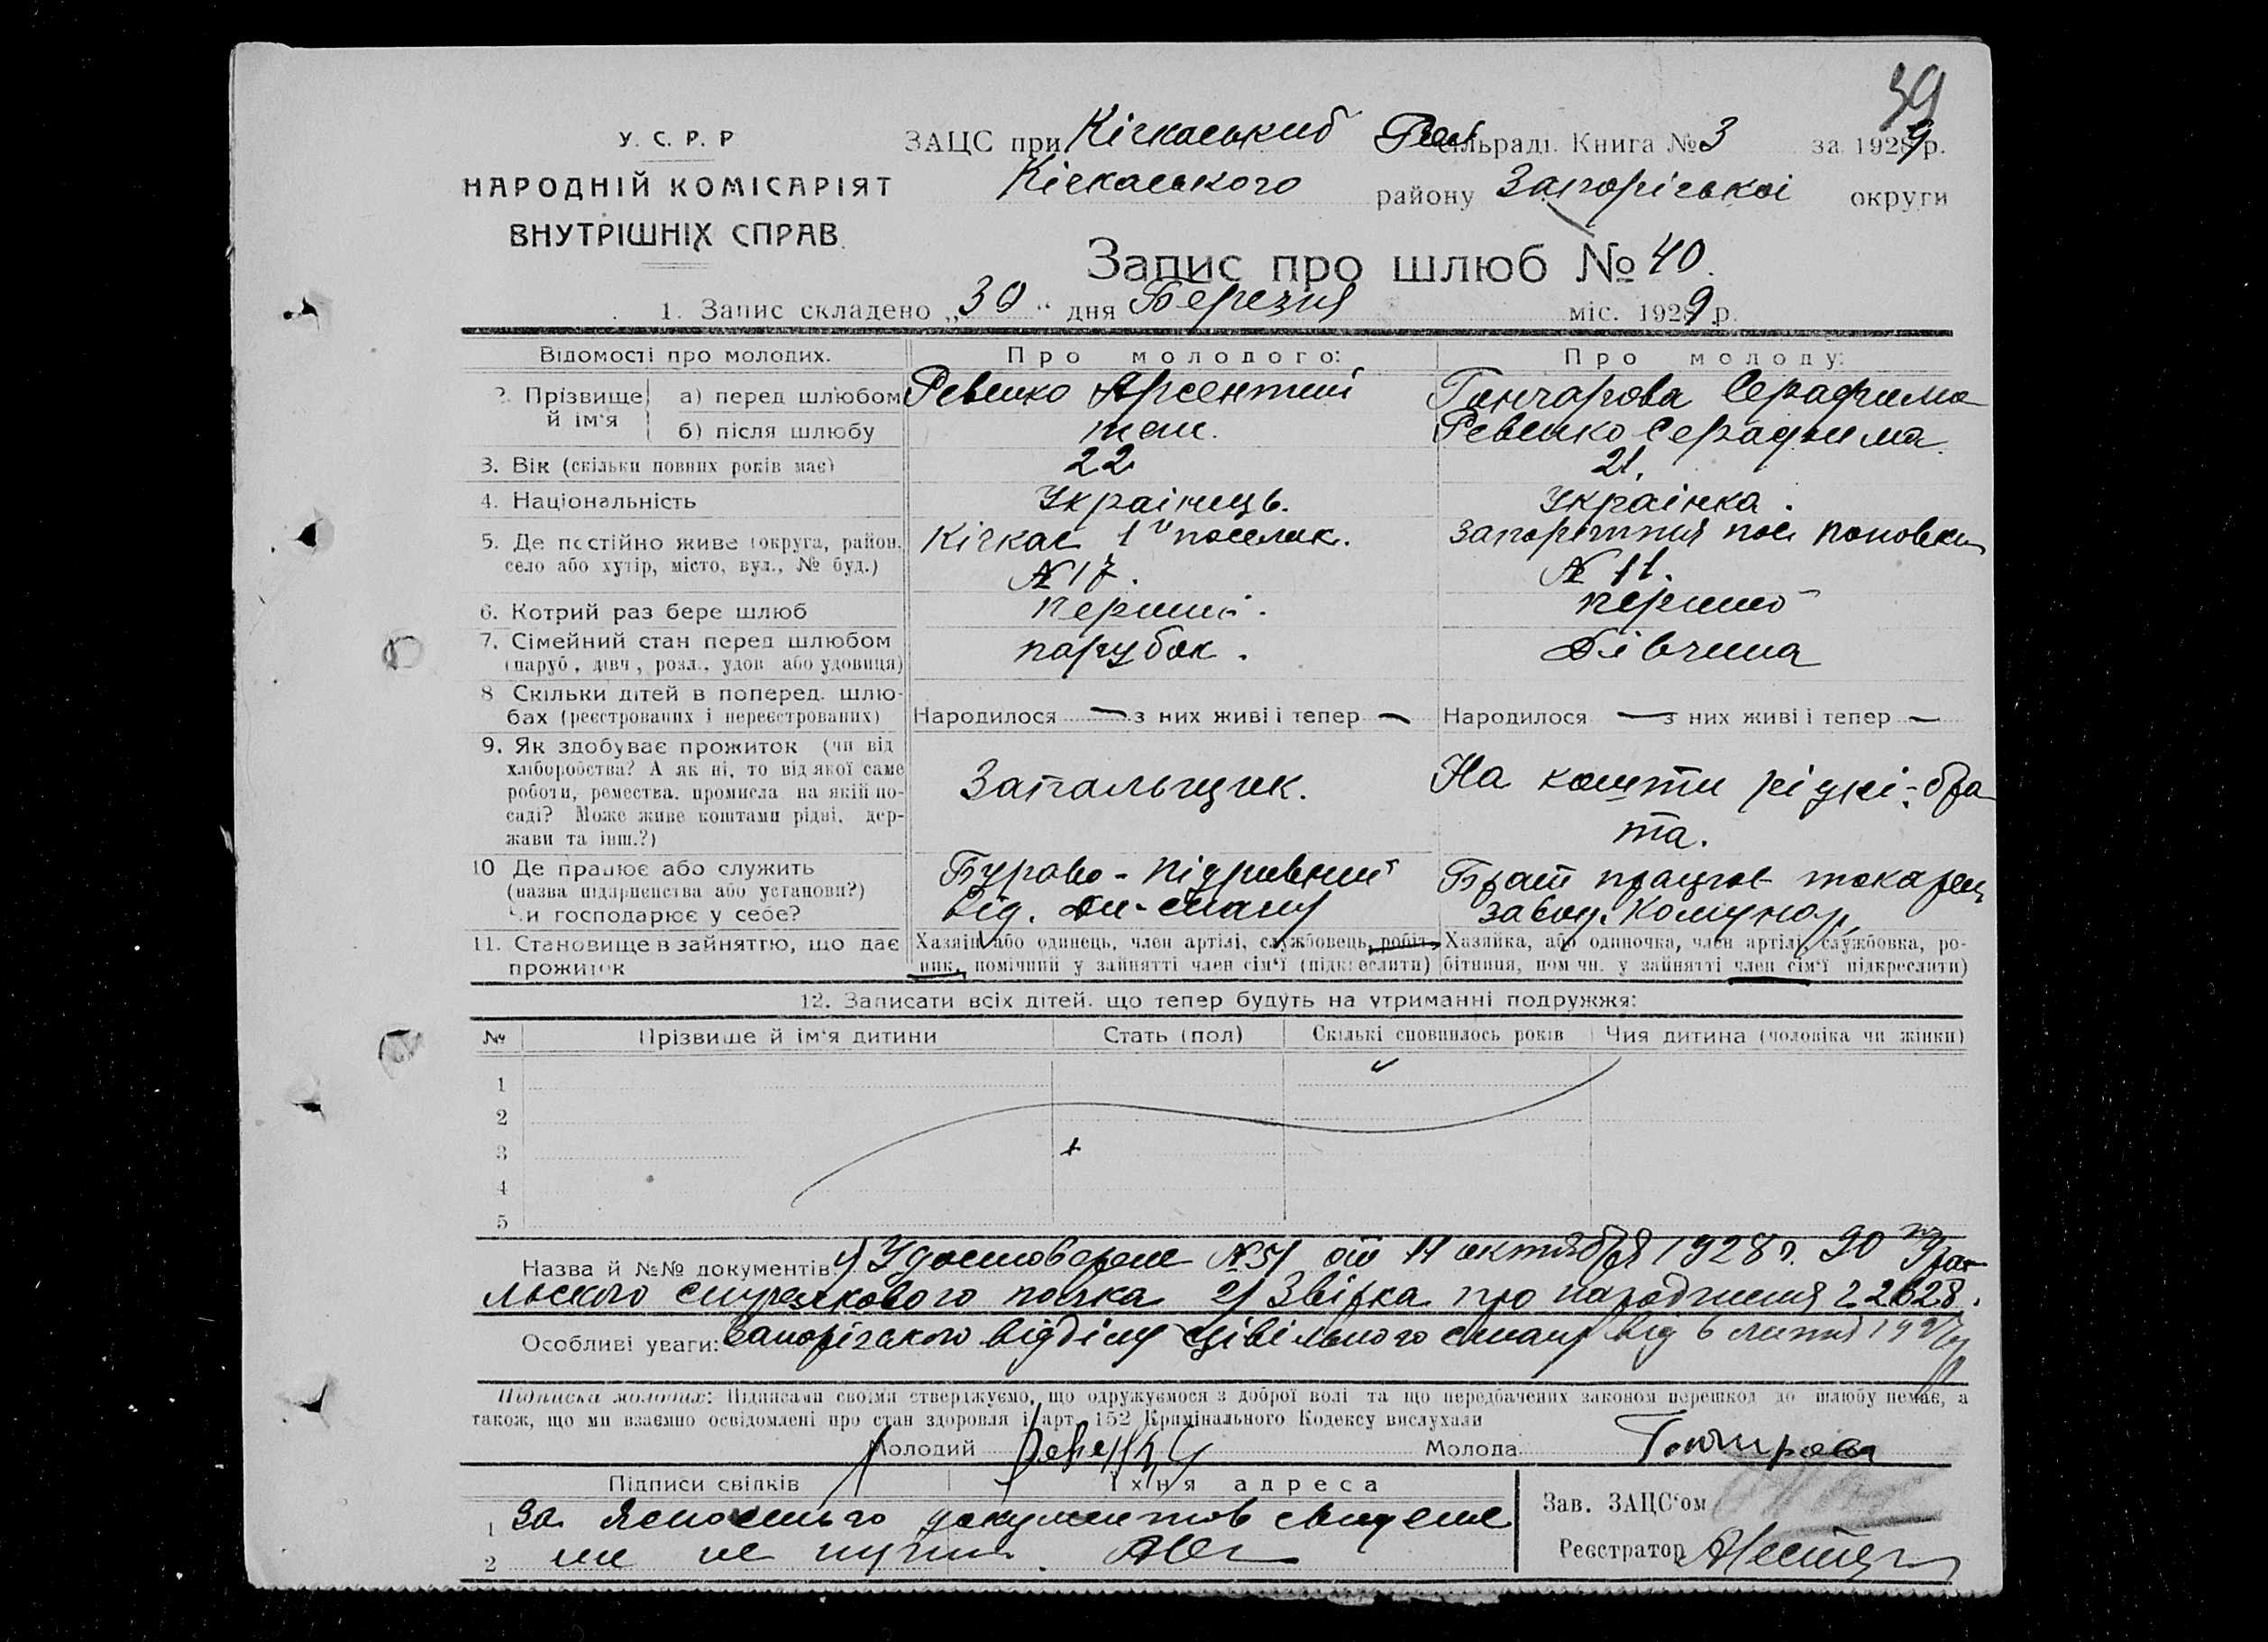 39
У. С. Р. Р
НАРОДНІЙ КОМІСАРІЯТ
ВНУТРІШНІХ СПРАВ.
ЗАЦС при Кічкаський сільраді. Книга № 3 за 1929 р.
Кічкаського району Запорізької округи
Запис про шлюб № 40.
1. Запис складено „30“ дня Березня міс. 1929 р.
Відомості про молодих. Про молодого: Про молоду:
2. Прізвище й ім'я а) перед шлюбом Ревенко Арсентий Гончарова Серафима
б) після шлюбу теж. Ревенко Серафима.
3. Вік (скільки повних років має) 22 21.
4. Національність Українець. Українка.
5. Де постійно живе (округа, район, Кічкас 1й поселок. Запоріжжя пос Поповка
село або хутір, місто, вул., № буд.) № 17. № 11.
6. Котрий раз бере шлюб перший. перший
7. Сімейний стан перед шлюбом парубок. Дівчина
(паруб., дівч., розл., удов. або удовиця)
8 Скільки дітей в поперед. шлю-
бах (реєстрованих і нереєстрованих) Народилося — з них живі і тепер — Народилося — з них живі і тепер —
9. Як здобуває прожиток (чи від
хліборобства? А як ні, то від якої саме Запальщик. На кошти рідні-бра
роботи, ремества, промисла, на якій по-
саді? Може живе коштами рідні, дер- та.
жави та інш.?)
10 Де працює або служить Бурово-підривний Брат працює токарем
(назва підприємства або установи?) Від. Дн-стану завод. Комунар,
Чи господарює у себе?
11. Становище в зайняттю, що дає Хазяїн або одинець, член артілі, службовець, робіт- Хазяйка, або одиночка, член артілі, службовка, ро-
прожиток ник, помічний у зайнятті член сім'ї (підкреслити) бітниця, помічн. у зайнятті член сім'ї підкреслити)
12. Записати всіх дітей, що тепер будуть на утриманні подружжя:
№ Прізвище й ім'я дитини Стать (пол) Скількі сповнилось років Чия дитина (чоловіка чи жінки)
1
2
3
4
5
Назва й №№ документів: 1) Удостоверене № 51 от 11 октября 1928 г. 90 Ура-
льского стрелкового полка 2) Звістка про народження 22628.
Особливі уваги: Запорізького відділу цівільного стану від 6 липня
Підписка молодих: Підписами своїми стверджуємо, що одружуємося з доброї волі та що передбачених законом перешкод до шлюбу немає, а
також, що ми взаємно освідомлені про стан здоровля і арт. 152 Кримінального Кодексу вислухали
Молодий Ревенко Молода Гончарова
Підписи свідків Їхня адреса
1 За документов
2
Зав. ЗАЦС'ом
Реєстратор